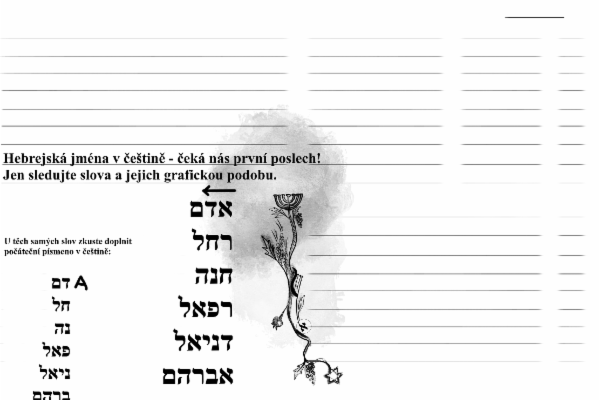 Hebrejská jména v češtině - čeká nás první poslech!
Jen sledujte slova a jejich grafickou podobu.
אדם
רחל
חנה
רפאל
דניאל
אברהם
U těch samých slov zkuste doplnit
počáteční písmeno v češtině:
A דם
חל
נה
פאל
ניאל
ברהם